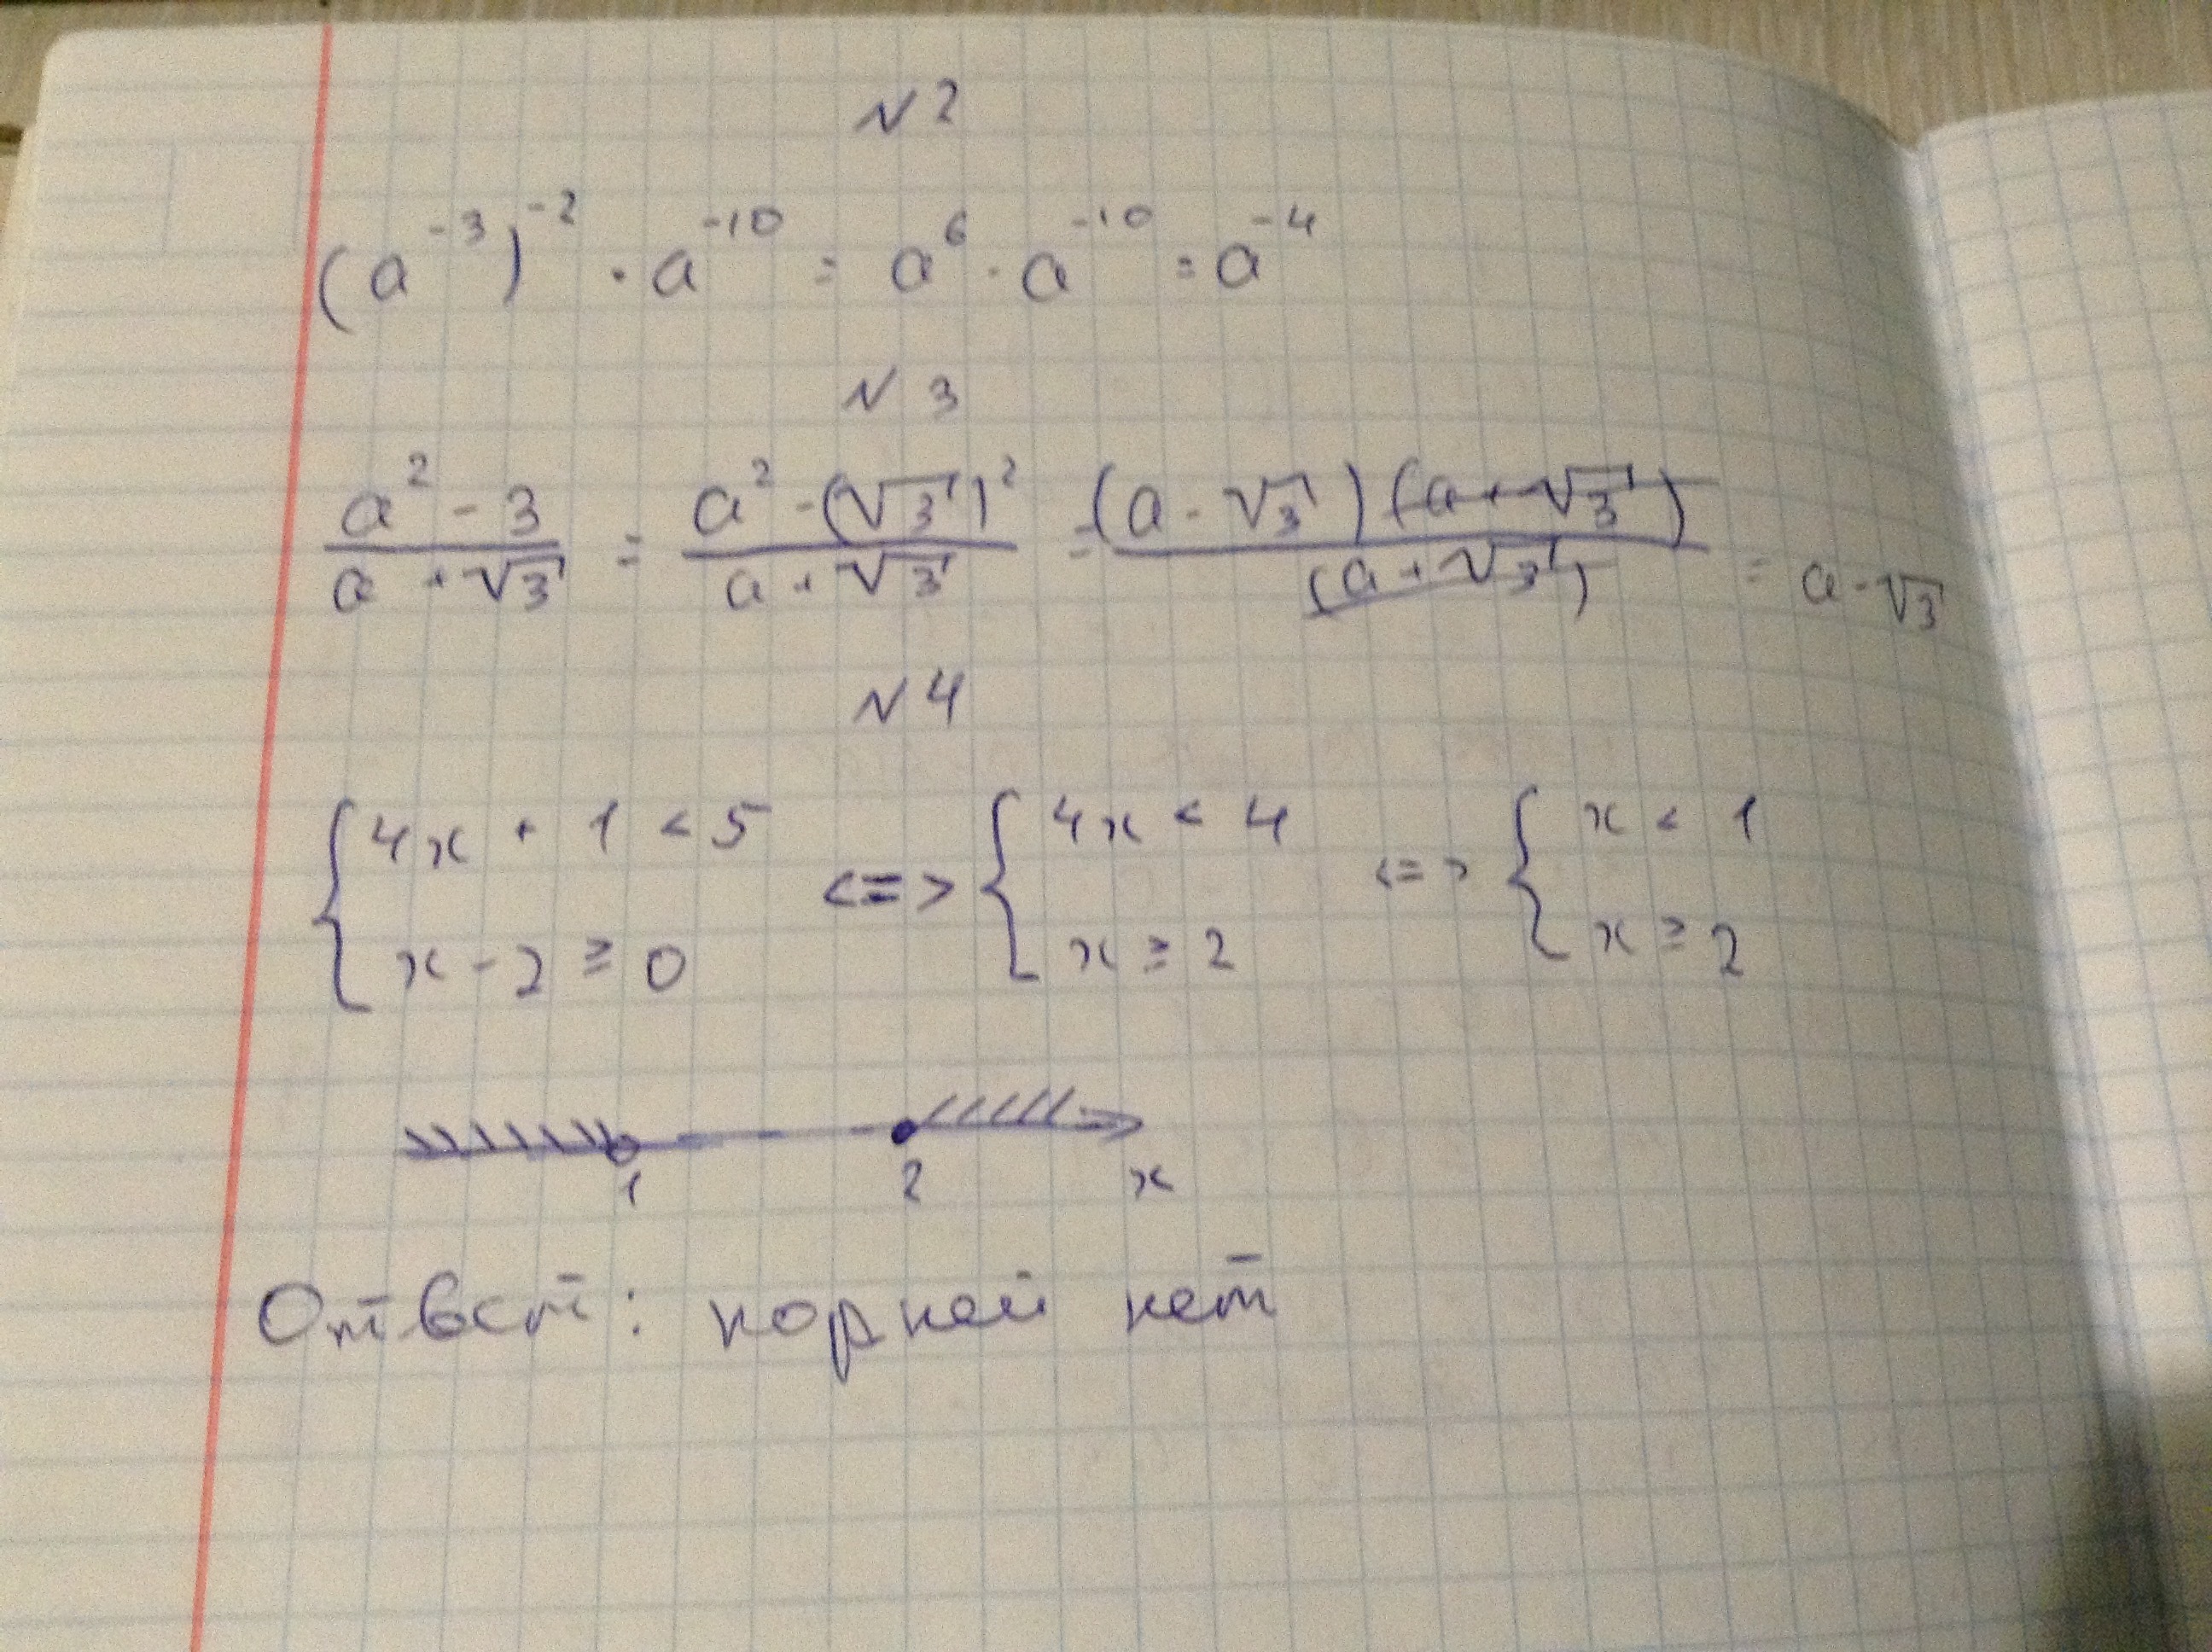 №2
(a⁻³)⁻² · a⁻¹⁰ = a⁶ · a⁻¹⁰ = a⁻⁴
№3
(a² - 3)/(a + √3) = (a² - (√3)²)/(a + √3) = ((a - √3)(a + √3))/((a + √3)) = a - √3
№4
{4x + 1 < 5 <=> {4x < 4 <=> {x < 1
{x - 2 ≥ 0 {x ≥ 2 {x ≥ 2
1 2 x
Ответ: корней нет